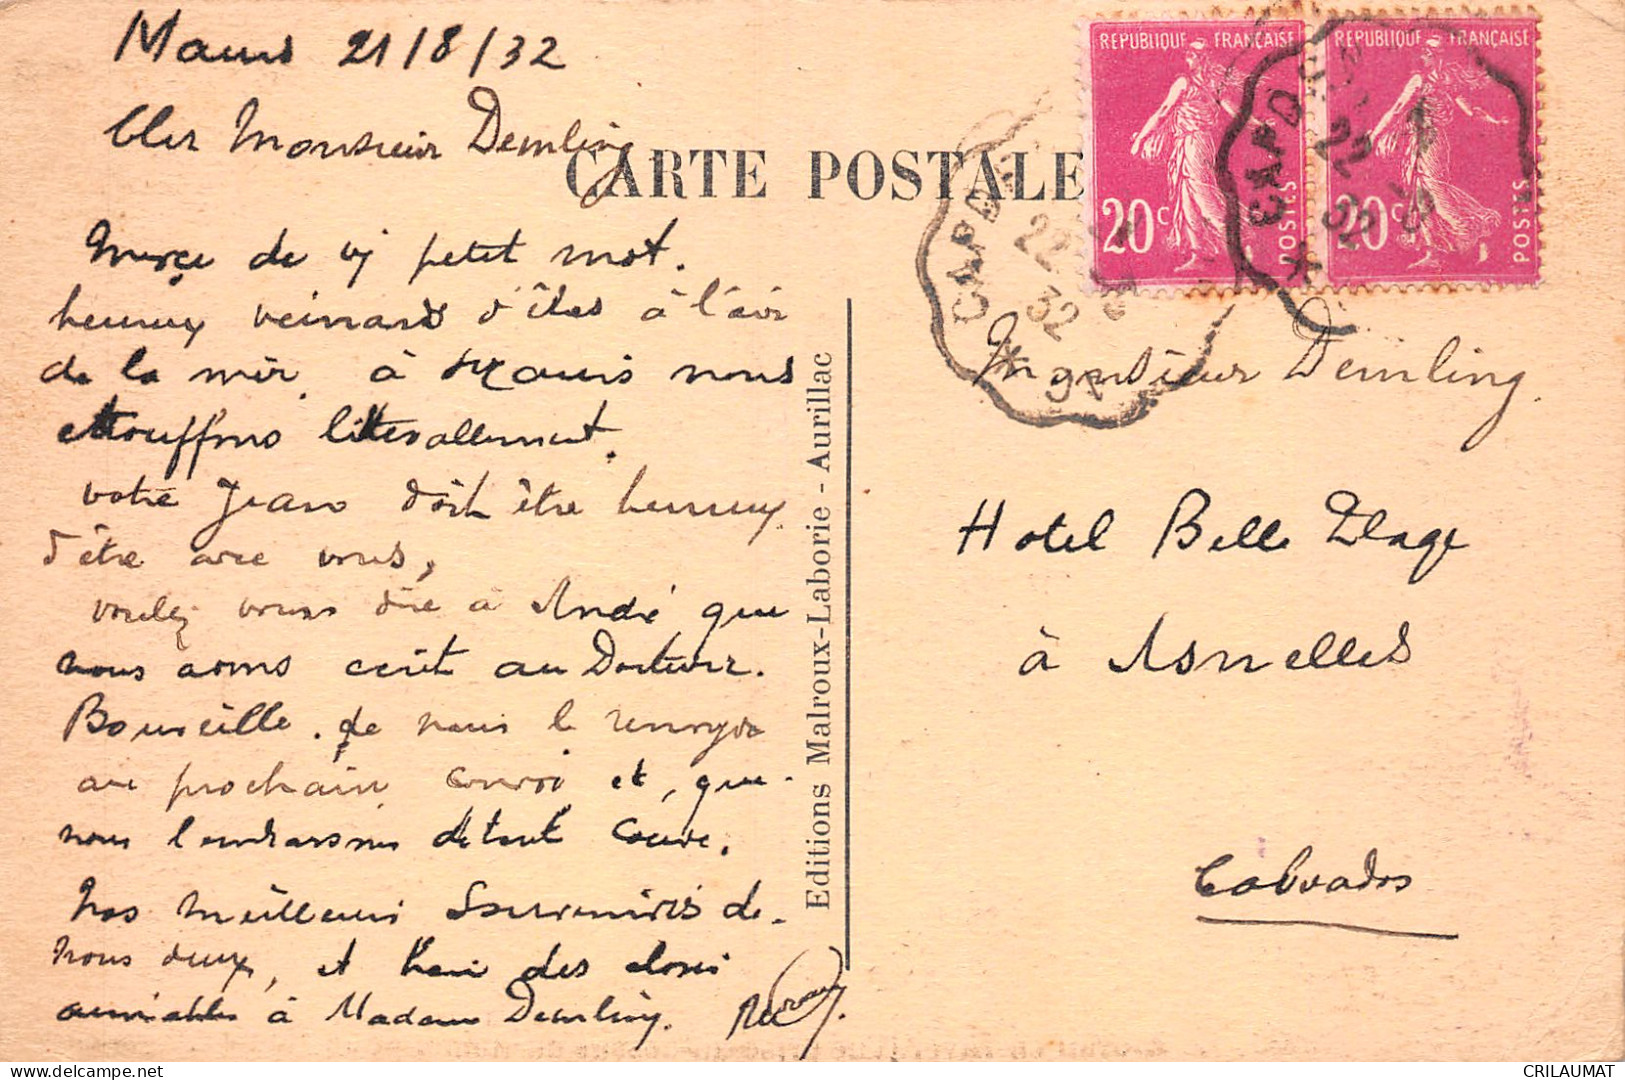 Maurs 21/8/32
Cher Monsieur Demling
CARTE POSTALE
REPUBLIQUE FRANÇAISE
20c
POSTES
REPUBLIQUE FRANÇAISE
20c
POSTES
CAPD
22
32
CAPD
22
32
de petit mot.
heureux veinard d'être à l'air
de la mer. à Maurs nous
étouffons littéralement.
votre Jean doit être heureux
d'être avec vous,
voulez vous dire à André que
nous avons écrit au Docteur
Bouseille. de nous le renvoyer
au prochain convoi et, que
nous l'embrassons de tout coeur.
Nos meilleurs Souvenirs de
nous deux, et des choses
aimables à Madame Demling.
Editions Malroux-Laborie - Aurillac
Monsieur Demling
Hotel Belle Plage
à Asnelles
Calvados
CRILAUMAT